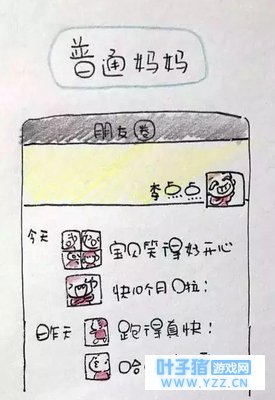 普通妈妈
朋友圈
李点点
今天
宝贝笑得好开心
快10个月啦!
昨天
跑得真快!
哈哈
叶子猪游戏网
WWW.YZZ.CN